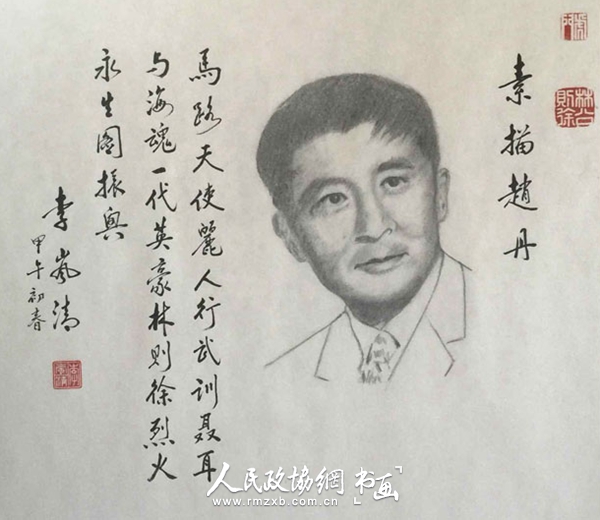 素描趙丹
林公則徐
馬路天使麗人行武训聂耳
与海魂一代英豪林则徐烈火
永生圖振興
李岚清
甲午初春
人民政协網 书画
www.rmzxb.com.cn